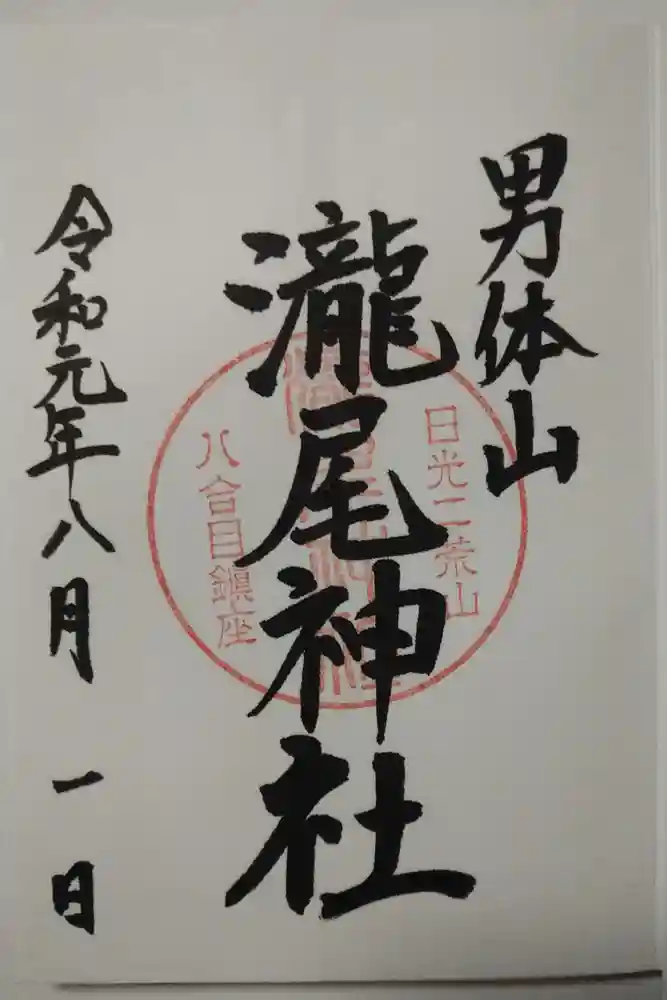 男体山
日光二荒山
瀧尾神社
八合目鎮座
令和元年八月一日